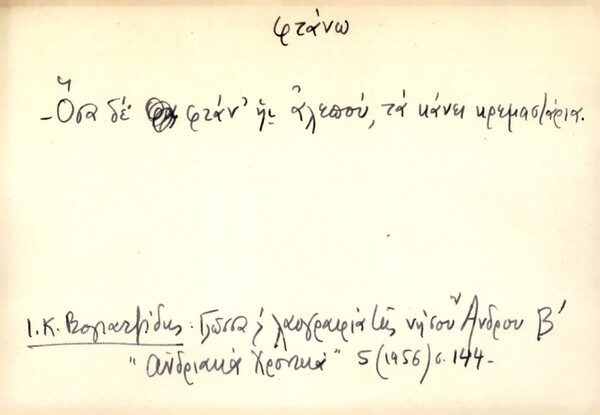 φτάνω
- Ὅσα δέ φτάν' ἡ ἀλεπού, τά κάνει κρεμαστάρια.
Ι. Κ. Βογιατζίδης: Γλῶσσα & λαογραφία τῆς νήσου Ἄνδρου Β'
"Ἀνδριακά Χρονικά" 5 (1956) σ. 144-